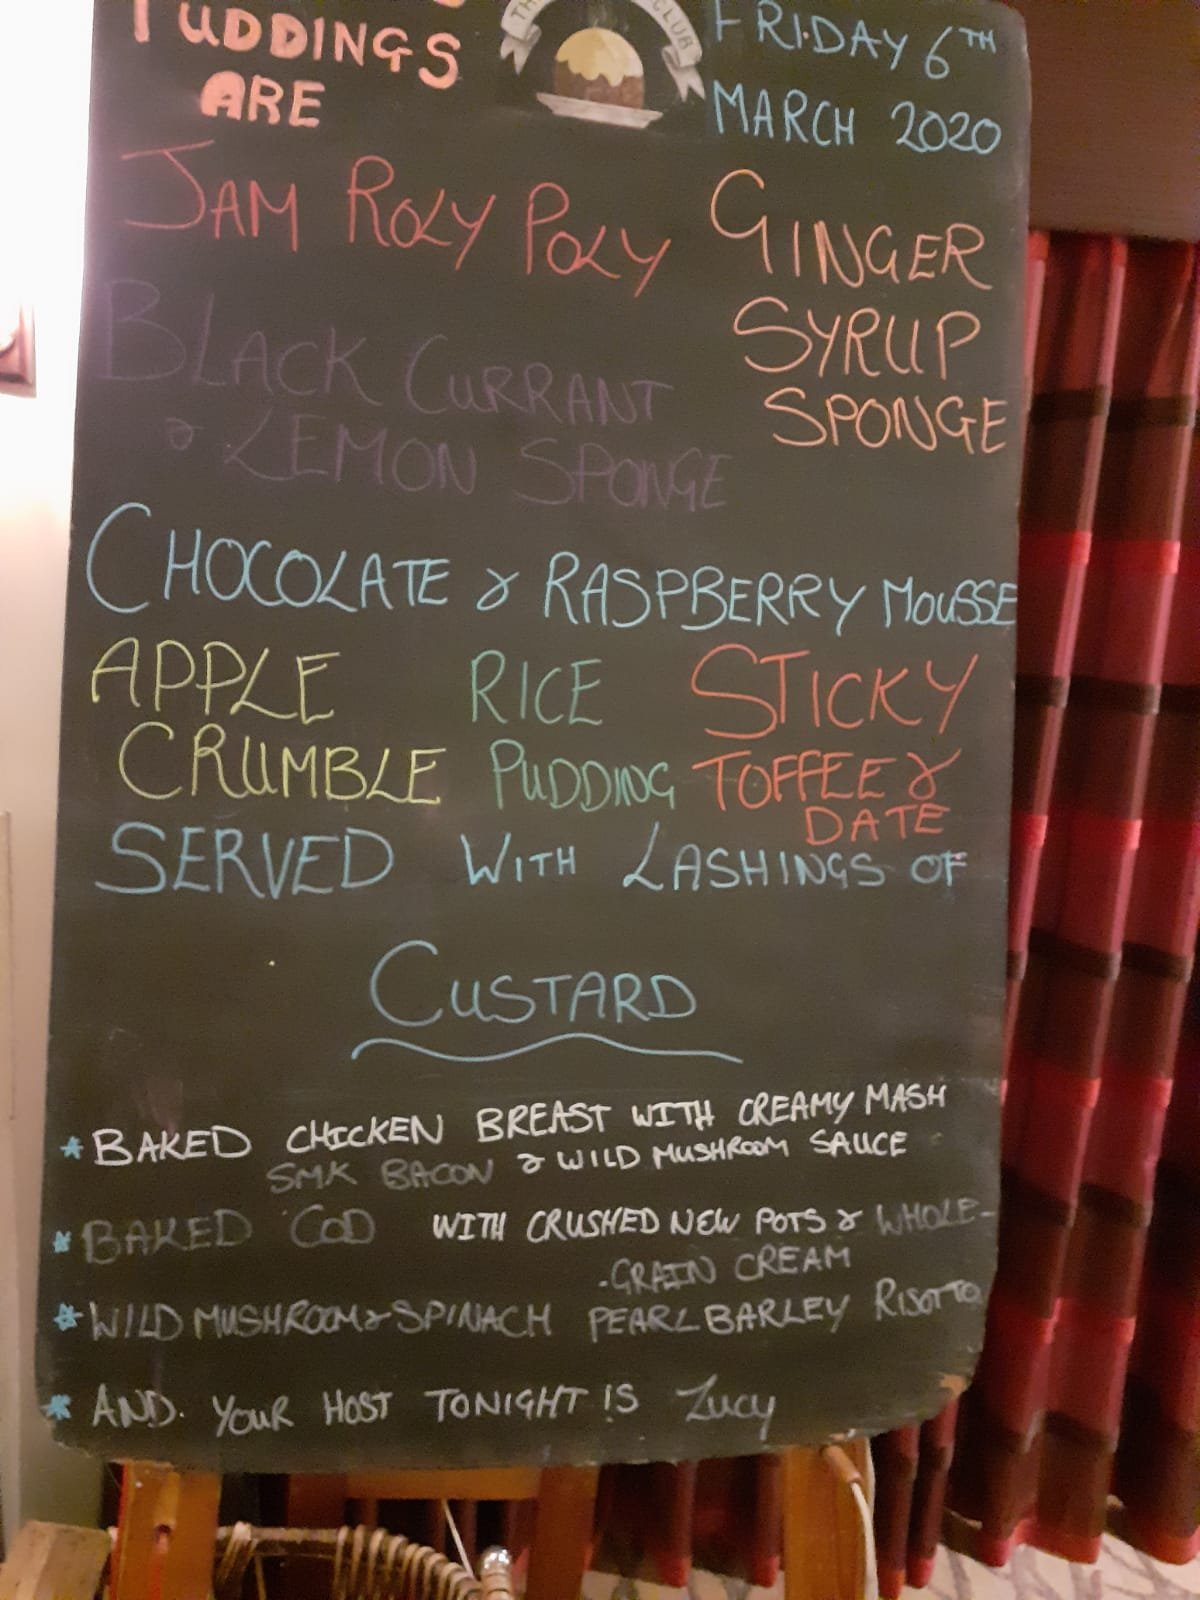 PUDDINGS
ARE
CLUB
FRIDAY 6TH
MARCH 2020
JAM ROLY POLY
GINGER
SYRUP
SPONGE
BLACK CURRANT
& LEMON SPONGE
CHOCOLATE & RASPBERRY MOUSSE
APPLE
CRUMBLE
RICE
PUDDING
STICKY
TOFFEE &
DATE
SERVED WITH LASHINGS OF
CUSTARD
* BAKED CHICKEN BREAST WITH CREAMY MASH
SMK BACON & WILD MUSHROOM SAUCE
* BAKED COD WITH CRUSHED NEW POTS & WHOLE-
-GRAIN CREAM
* WILD MUSHROOM & SPINACH PEARL BARLEY RISOTTO
* AND. YOUR HOST TONIGHT IS Lucy